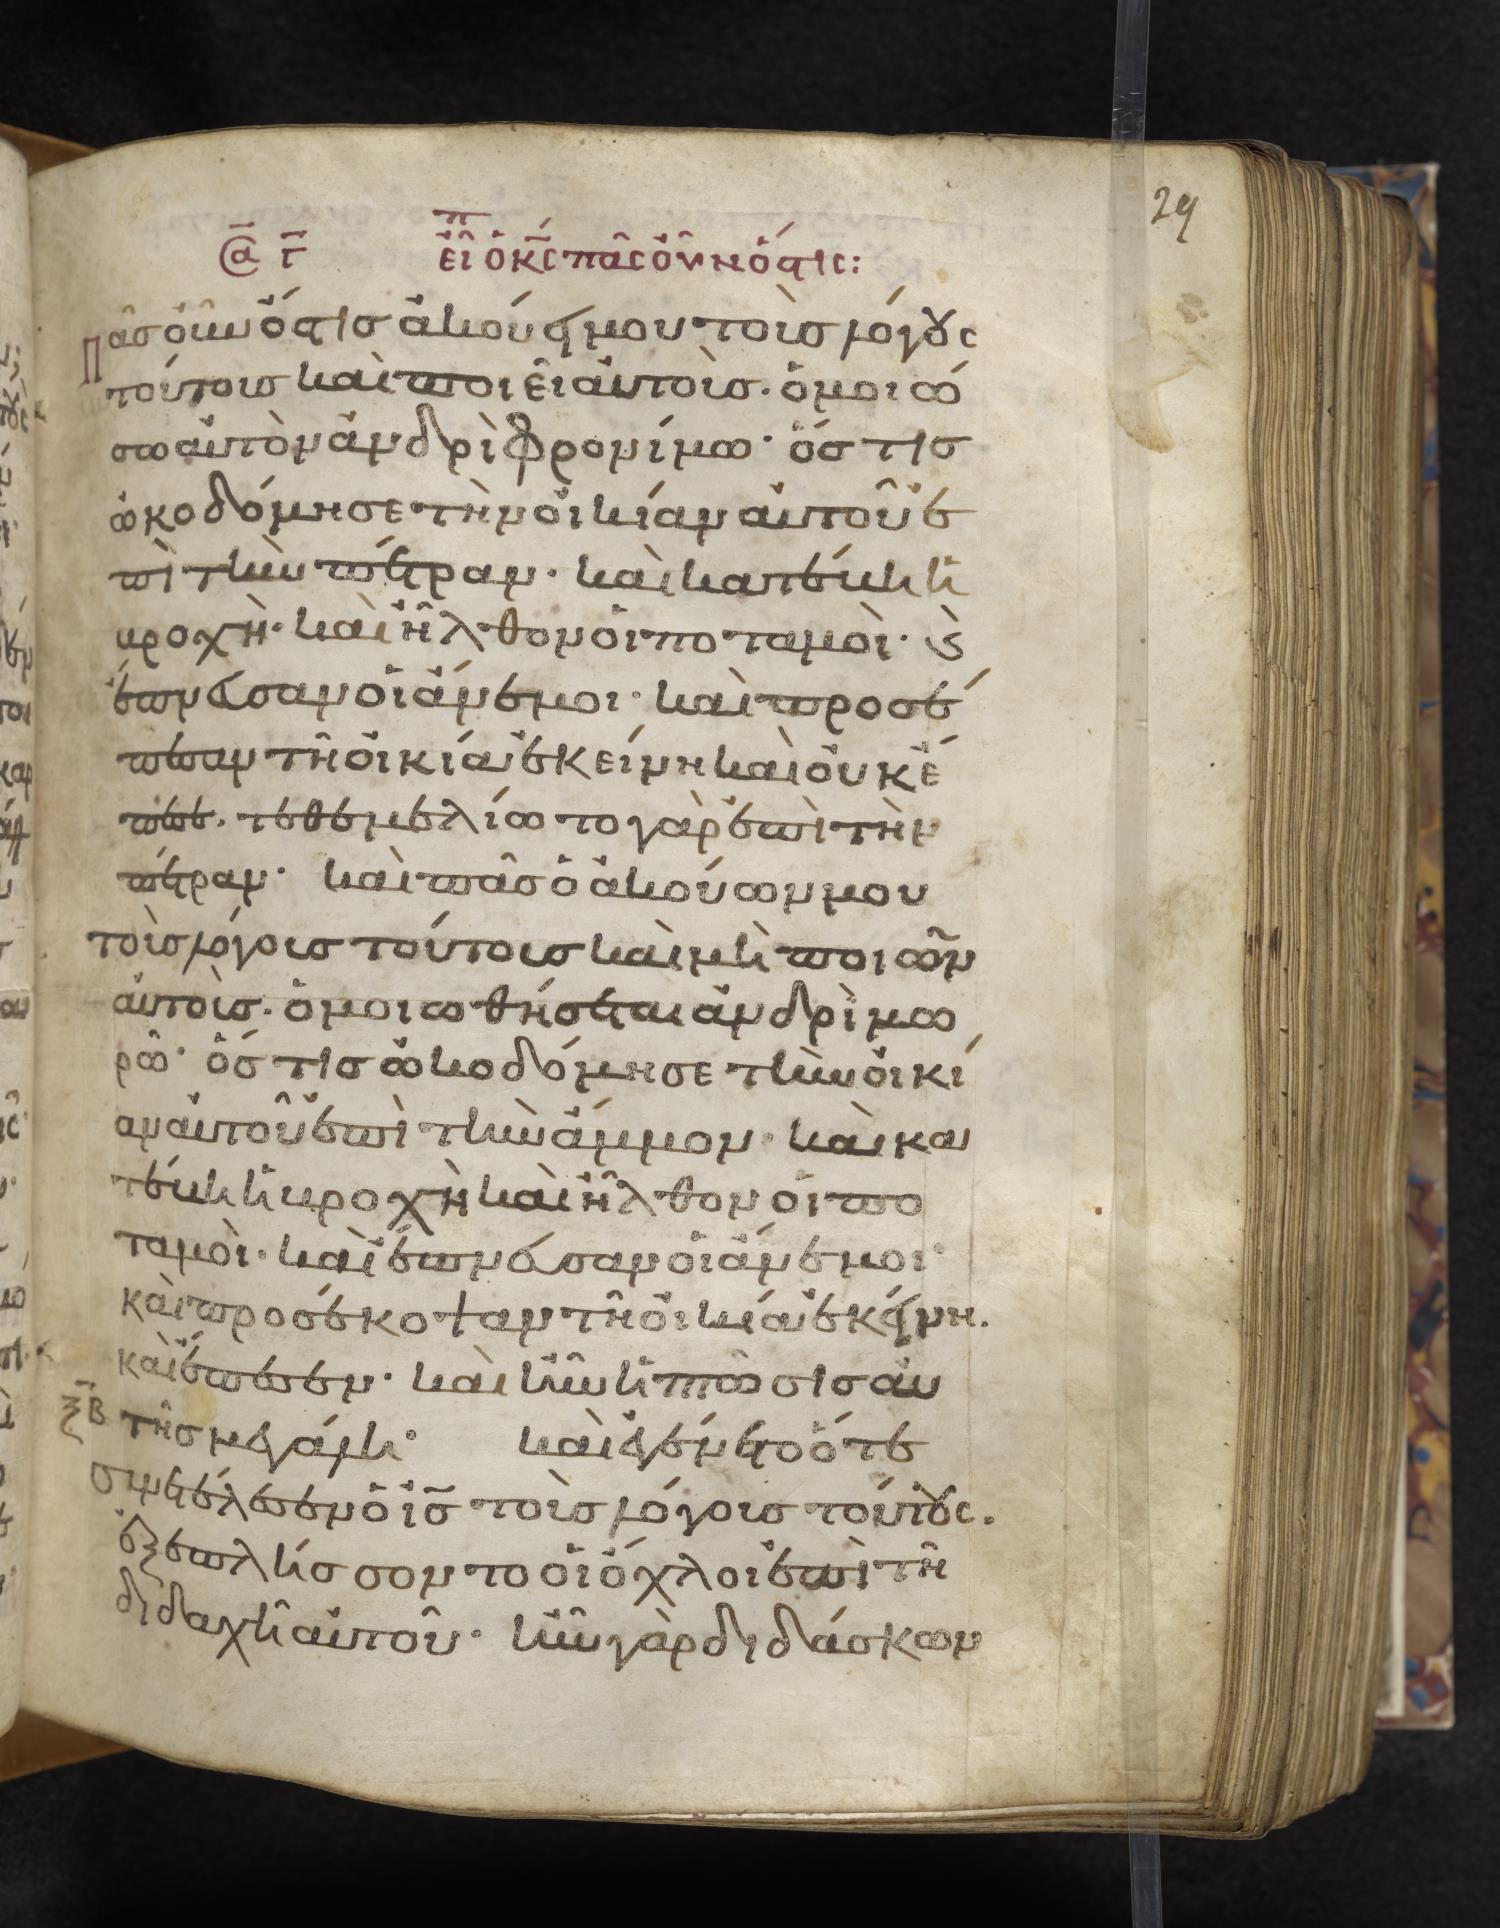 29
ᾱ γ̄ εἶπ ὁ κ̅ς πᾶς οὖν ὅστις:
Πᾶσ οὖν ὅστισ ἀκούει μου τοὺσ λόγους
τούτουσ καὶ ποιεῖ αὐτοὺσ· ὁμοιώ
σω αὐτὸν ἀνδρὶ φρονίμω· ὅσ τισ
ὠκοδόμησε τὴν οἰκίαν αὐτοῦ ἐ
πὶ τὴν πέτραν· καὶ κατέβη ἡ
βροχὴ· καὶ ἦλθον οἱ ποταμοὶ· ϗ
ἔπνευσαν οἱ ἄνεμοι· καὶ προσέ
πεσαν τῆ οἰκία ἐκείνη καὶ οὐκ ἔ
πεσε· τεθεμελίωτο γὰρ ἐπὶ τὴν
πέτραν· καὶ πᾶσ ὁ ἀκούων μου
τοὺσ λόγουσ τούτουσ καὶ μὴ ποιῶν
αὐτοὺσ· ὁμοιωθήσεται ἀνδρὶ μω
ρῶ· ὅσ τισ ὠκοδόμησε τὴν οἰκί
αν αὐτοῦ ἐπὶ τὴν ἄμμον· καὶ κα
τέβη ἡ βροχὴ καὶ ἦλθον οἱ πο
ταμοὶ· καὶ ἔπνευσαν οἱ ἄνεμοι·
καὶ προσέκοψαν τῆ οἰκία ἐκείνη.
καὶ ἔπεσεν· καὶ ἦν ἡ πτῶσισ αὐ
ξ̅β τῆσ μεγάλη· καὶ ἐγένετο ὅτε
συνετέλεσεν ὁ ι̅σ τοὺσ λόγουσ τούτους.
ἐξεπλήσσοντο οἱ ὄχλοι ἐπὶ τῆ
διδαχῆ αὐτοῦ· ἦν γὰρ διδάσκων